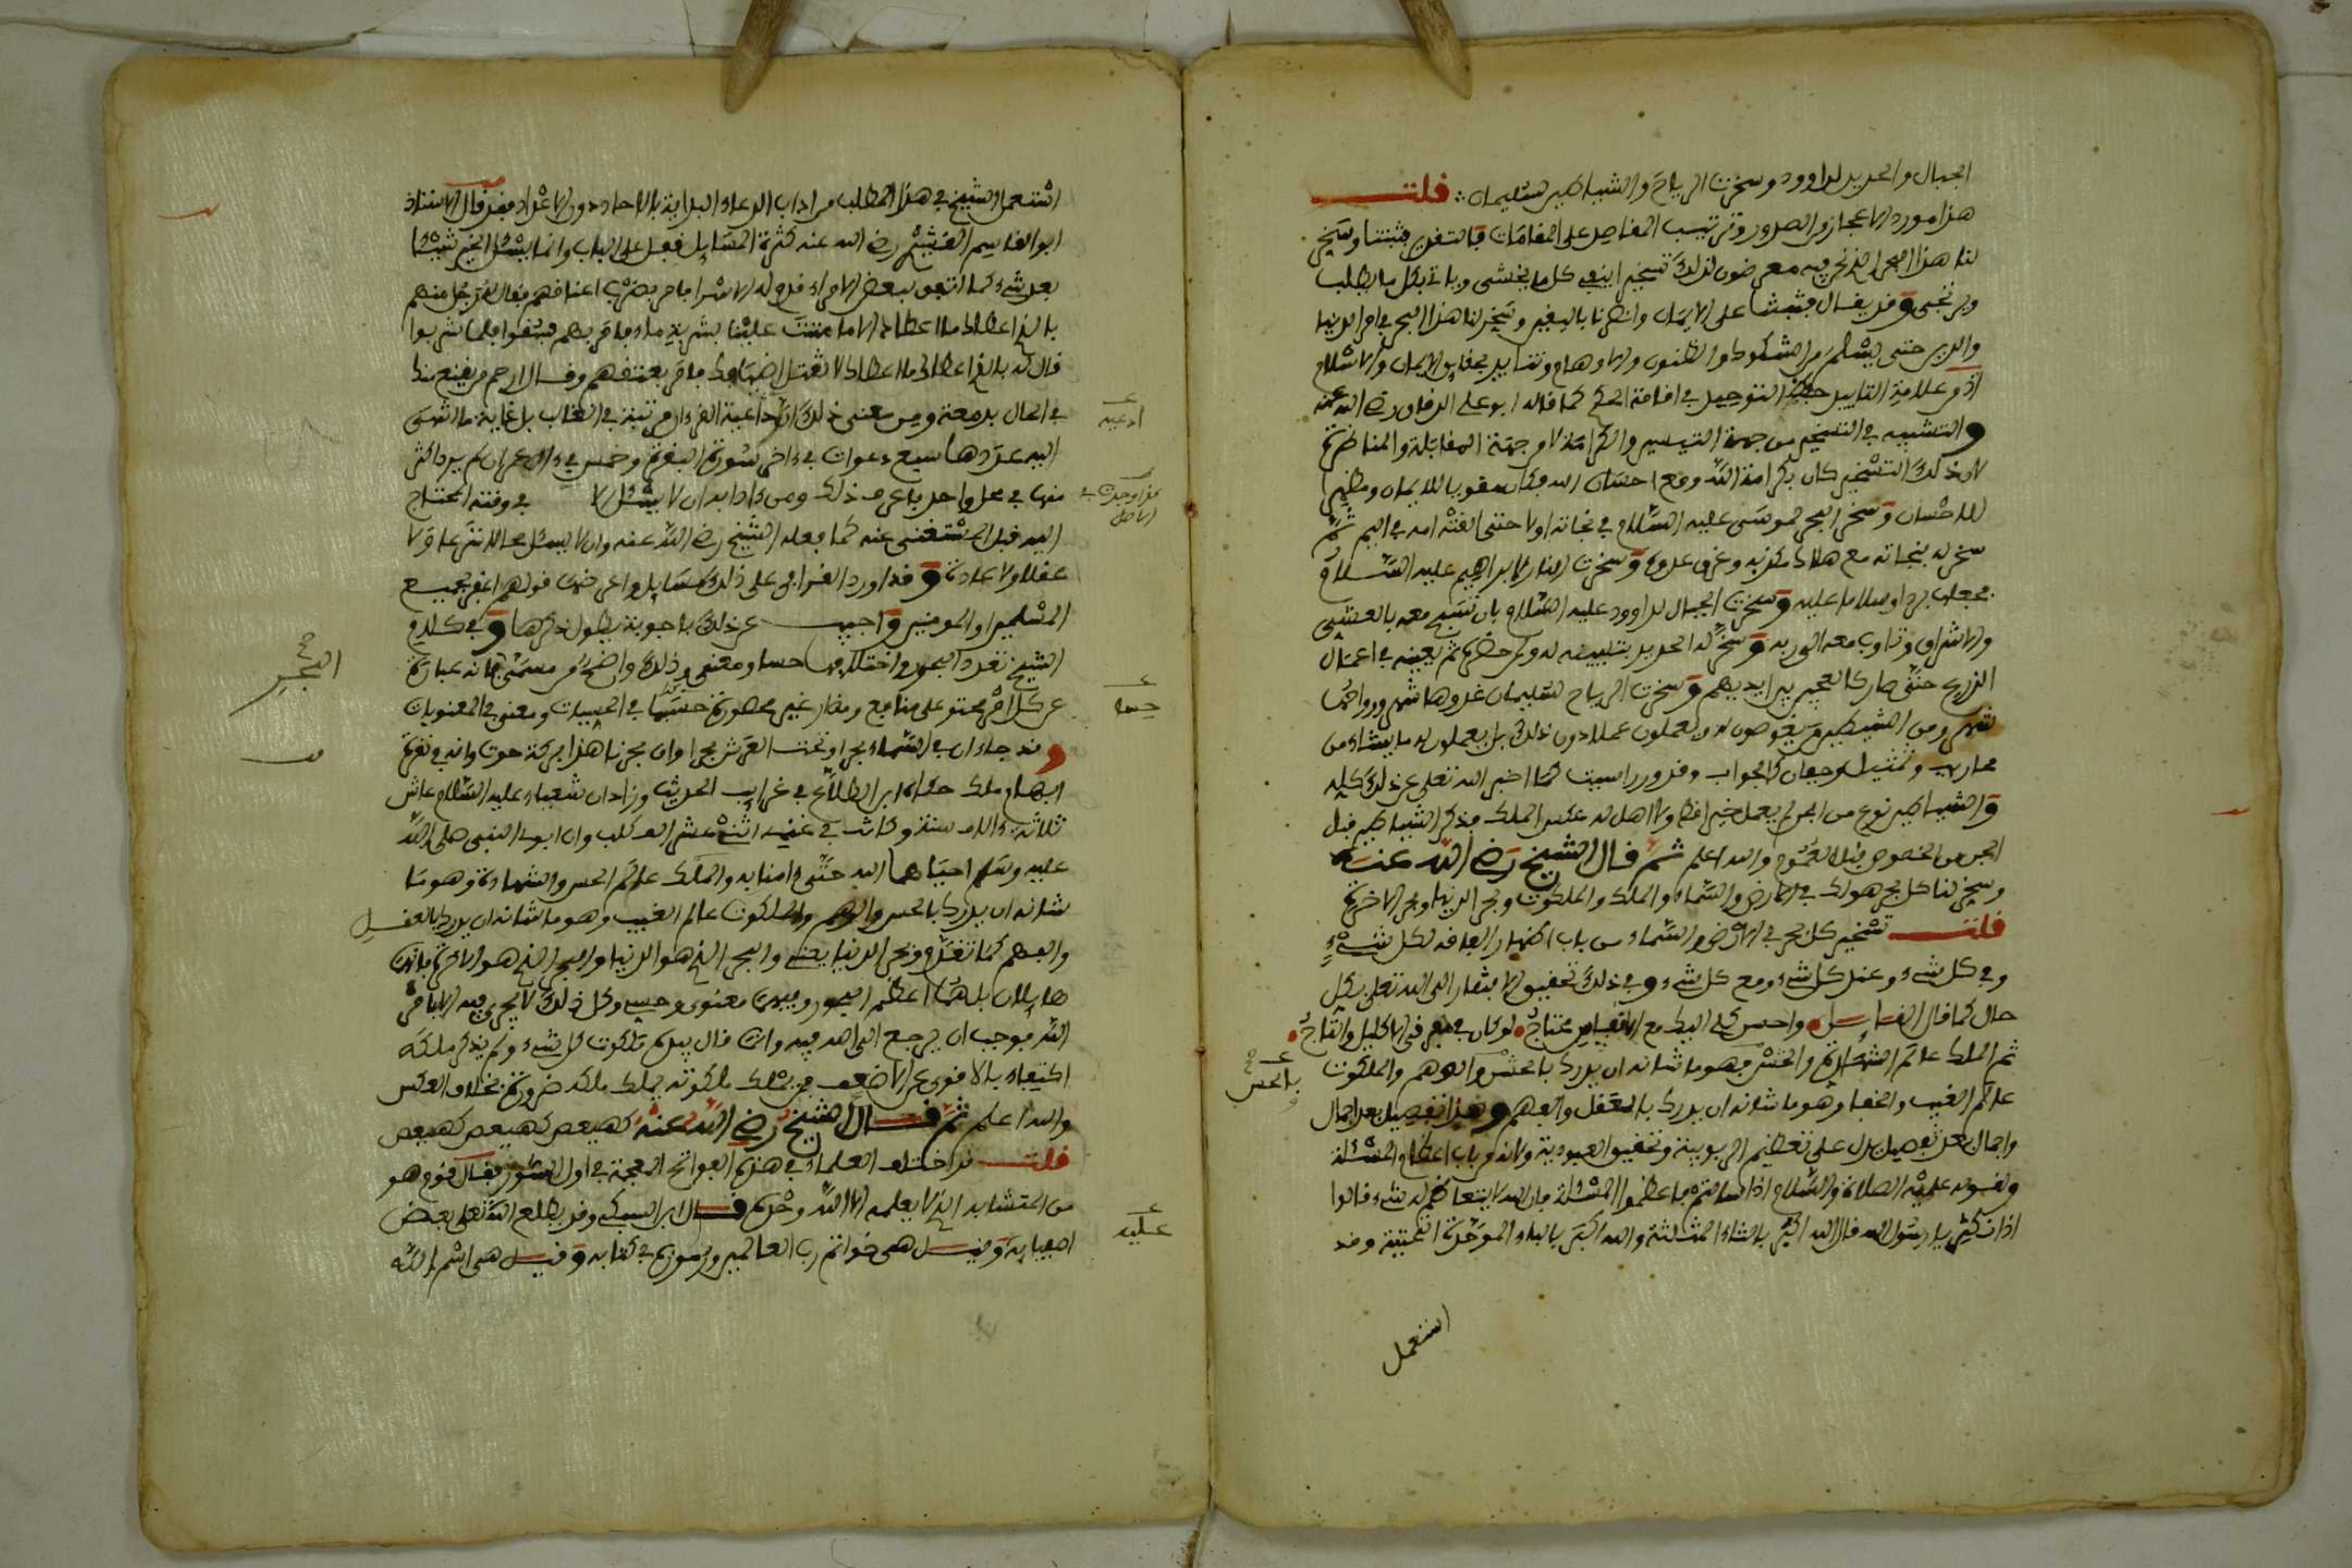 الجبال والحديد لداوود وسخرت الرياح والشياطين لسليمان ∴ قلت
هذا مورد الاعجاز والصدور وترتيب المفاصل على المقامات فالتفريع فثبتنا وسخر
لنا هذا البحر الذي نحن فيه معرضون لذلك تسخيرا ينفي كل ما يخشى وياتي بكل ما يطلب
ويرتجى وقد يقال فثبتنا على الايمان وانصرنا باليقين وسخر لنا هذا البحر في امر الدنيا
والدين حتى يسلم من الشكوك والظنون والاوهام ونتايد بحقايق الايمان والاسلام
اذ من علامة التاييد حفظ التوحيد في اقامة الحكم كما قاله ابو علي الدقاق رضي الله عنه
والتشبيه في التسخير من جهة التيسير والكرامة لا من جهة المقابلة والمناظرة
لان ذلك التسخير كان بكرامة الله ومع احسان الله فكان مقويا للايمان ومظهرا
للاحسان وسخر البحر لموسى عليه السلام في نجاته اولا حتى القته امه في اليم ثم
سخر له بنجاته مع هلاك مكذبه وغرق عدوه وسخرت النار لابراهيم عليه السلام
فجعلت بردا وسلاما عليه وسخرت الجبال لداوود عليه السلام بان تسبح معه بالعشي
والاشراق وتاوب معه الى ربه وسخر له الحديد بتليينه له ولمن حضره ثم يعينه في اعمال
الزرع حتى صار كالعجين بين ايديهم وسخرت الرياح لسليمان غدوها شهر ورواحها
شهر ومن الشياطين من يغوصون له ويعملون عملا دون ذلك بل يعملون له ما يشاء من
محاريب وتماثيل وجفان كالجواب وقدور راسيت كما اخبر الله تعلى عن ذلك كله
والشياطين نوع من الجن لم يعمل خيرا قط ولا اهل له عكس الملك فذكر الشياطين قبل
الجن من الخصوص قبل العموم والله اعلم ثم قال الشيخ رضي الله عنه
وسخر لنا كل بحر هو لك في الارض والسماء والملك والملكوت وبحر الدنيا وبحر الاخرة
قلت تسخير كل بحر في الارض والسماء من باب اظهار الفاقة لكل شيء
وفي كل شيء وعند كل شيء ومع كل شيء وفي ذلك تحقيق الافتقار الى الله تعلى بكل
حال كما قال القايل • واحسن حالي اليك مع الانفاس محتاج • لو كان في مفرقي الاكليل والتاج •
ثم الملك عالم الشهادة والحس وهو ما شانه ان يدرك بالحس والوهم والملكوت
عالم الغيب والخفا وهو ما شانه ان يدرك بالعقل والفهم وهذا تفصيل بعد اجمال
واجمال بعد تفصيل يدل على تعظيم الربوبية وتحقيق العبودية ولانه من باب اعظام المسئلة
ولقوله عليه الصلاة والسلام اذا سالتم فاعظموا المسئلة فان الله لا يتعاظمه شيء قالوا
اذا نكثر يا رسول الله قال الله اكثر بالثاء المثلثة والله اكبر بالباء الموحدة التحتية وقد
استعمل
بالحس
استعمل الشيخ في هذا المطلب من اداب الدعاء البداية بالاحاد دون الاعداد فقد قال الاستاذ
ابو القاسم القشيري رضي الله عنه كثرة المسايل فعل على الباب وانما يسئل الخير شيئا
بعد شيء كما اتفق لبعض الامراء قدم له الاسرا فامر بضرب اعناقهم فقال له رجل منهم
بالذي اعطاك ما اعطاك الا ما مننت علينا بشربة ماء فامر بهم فسقوا فلما شربوا
قال له بالذي اعطاك ما اعطاك لا تقتل اضيافك فامر بعتقهم وقال ارحم من يقنع منك
في الحال بدمعة ومن معنى ذلك ادعية القرءان مرتبة في الغاب بل غاية ما انتهى
اليه عددها سبع دعوات في ءاخر سورة البقرة وخمس في ءال عمران لم يرد اكثر
منها في محل واحد فاعرف ذلك ومن ءادابه ان لا يسئل الا في وقته المحتاج
اليه قبل المستغنى عنه كما فعله الشيخ رضي الله عنه وان لا يسئل محالا شرعا ولا
عقلا ولا عادة وقد اورد القرافي على ذلك مسايل واعترض فيها قولهم اغفر لجميع
المسلمين او المومنين واجيب عن ذلك باجوبة يطول ذكرها وفي كلام
الشيخ تعدد البحور واختلافها حسا ومعنى وذلك واضح من مسمى لانه عبارة
عن كل امر محتو على منافع ومضار غير محصورة حسيها في الحسيات ومعنى في المعنويات
وقد جاء ان في السماء بحرا وتحت العرش بحرا وان بحرنا هذا بركة حوت وانه في نقرة
ابهام ملك حكاه ابن الطلاع في غرايب الحديث وزاد ان شعيبا عليه السلام عاش
ثلاثة ءالاف سنة وكانت في غنمه اثنى عشر الف كلب وان ابوي النبي صلى الله
عليه وسلم احياهما الله حتى ءامنا به والملك عالم الحس والشهادة وهو ما
شانه ان يدرك بالحس والوهم والملكوت عالم الغيب وهو ما شانه ان يدرك بالعقل
والفهم كما تقدم وبحر الدنيا يعني والبحر الذي هو الدنيا والبحر الذي هو الاخرة فانهن
هايلان بل هما اعظم البحور وفيهما معنوي وحسي وكل ذلك لا يجري فيه الا بامر
الله فوجب ان يرجع الى الله فيه وان قال بيده ملكوت كل شيء ولم يذكر ملكه
اكتفاء بالاقوى عن الاضعف فمن يملك ملكوته يملك ملكه ضرورة بخلاف العكس
والله اعلم ثم قال الشيخ رضي الله عنه كهيعص كهيعص كهيعص
قلت قد اختلف العلماء في هذه الفواتح المعجمة في اول السور فقال قوم هو
من المتشابه الذي لا يعلمه الا الله وحده قال ابن السبكي وقد يطلع الله تعلى بعض
اصفيايه وقيل هي خواتم رب العالمين ورموزه في كتابه وقيل هي اسم الله
ادعيه
هذا وجدت في الاصل
حسا
عليه
البحر